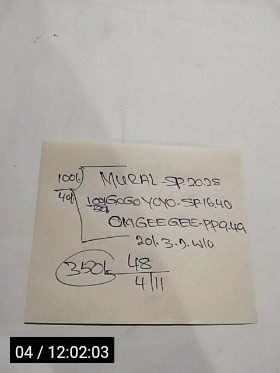 100% MURAL-SP.2025
40%
100% GOGO YOYO-SP.16.40
50%
OMGEEGEE-PP9.49
20%.3.2.W/O
350% 48
4/11
04 / 12:02:03